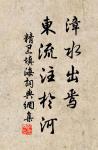 漳水出焉
東流注於河
精卫填海詞典網集